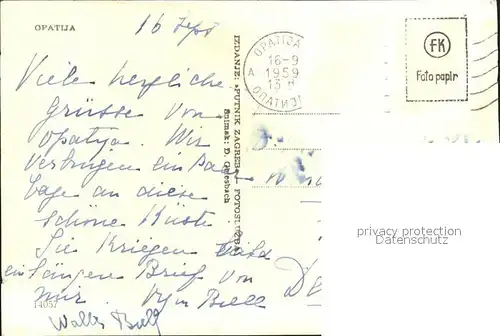 OPATIJA
16 Sept
Viele herzliche
Grüsse von
Opatija. Wir
verbringen ein Paar
Tage an diese
schöne Küste.
Sie kriegen bald
ein längeren Brief von
mir.
14057
IZDANJE: »PUTNIK ZAGREB«
Snimak: D. Griesbach
OPATIJA
16-9
A 1959
13 H
ОПАТИЈА
FK
Foto papir
privacy protection
Datenschutz